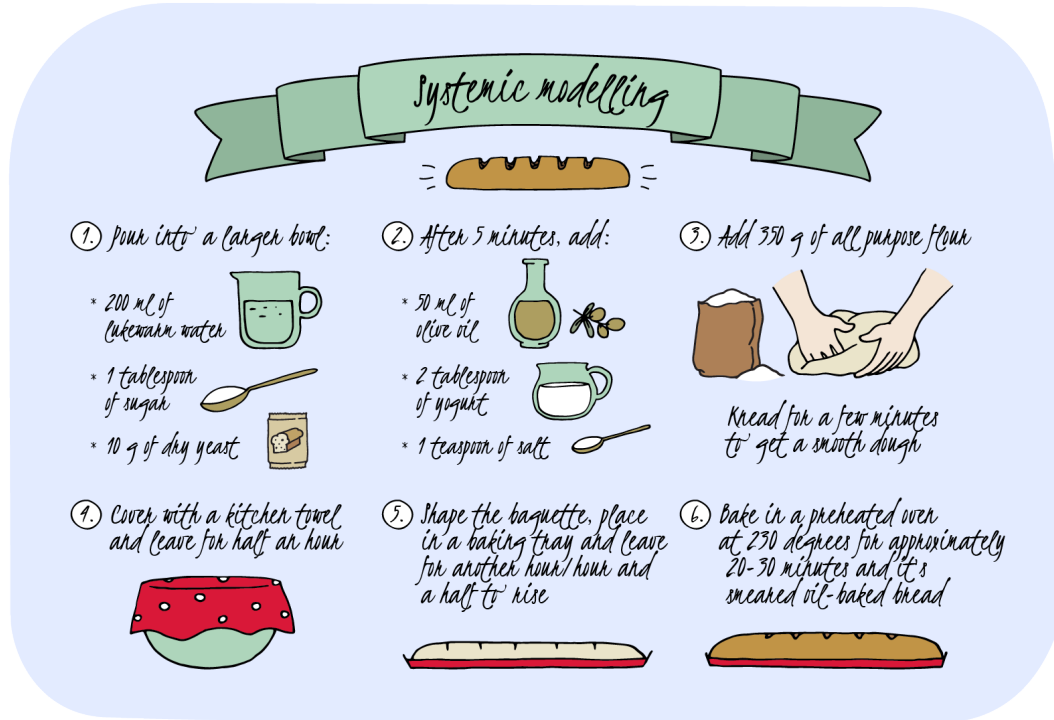 Systemic modelling
1. Pour into a larger bowl:
* 200 ml of
lukewarm water
* 1 tablespoon
of sugar
* 10 g of dry yeast
2. After 5 minutes, add:
* 50 ml of
olive oil
* 2 tablespoon
of yogurt
* 1 teaspoon of salt
3. Add 350 g of all purpose flour
Knead for a few minutes
to get a smooth dough
4. Cover with a kitchen towel
and leave for half an hour
5. Shape the baguette, place
in a baking tray and leave
for another hour/hour and
a half to rise
6. Bake in a preheated oven
at 230 degrees for approximately
20-30 minutes and it's
smeared oil-baked bread